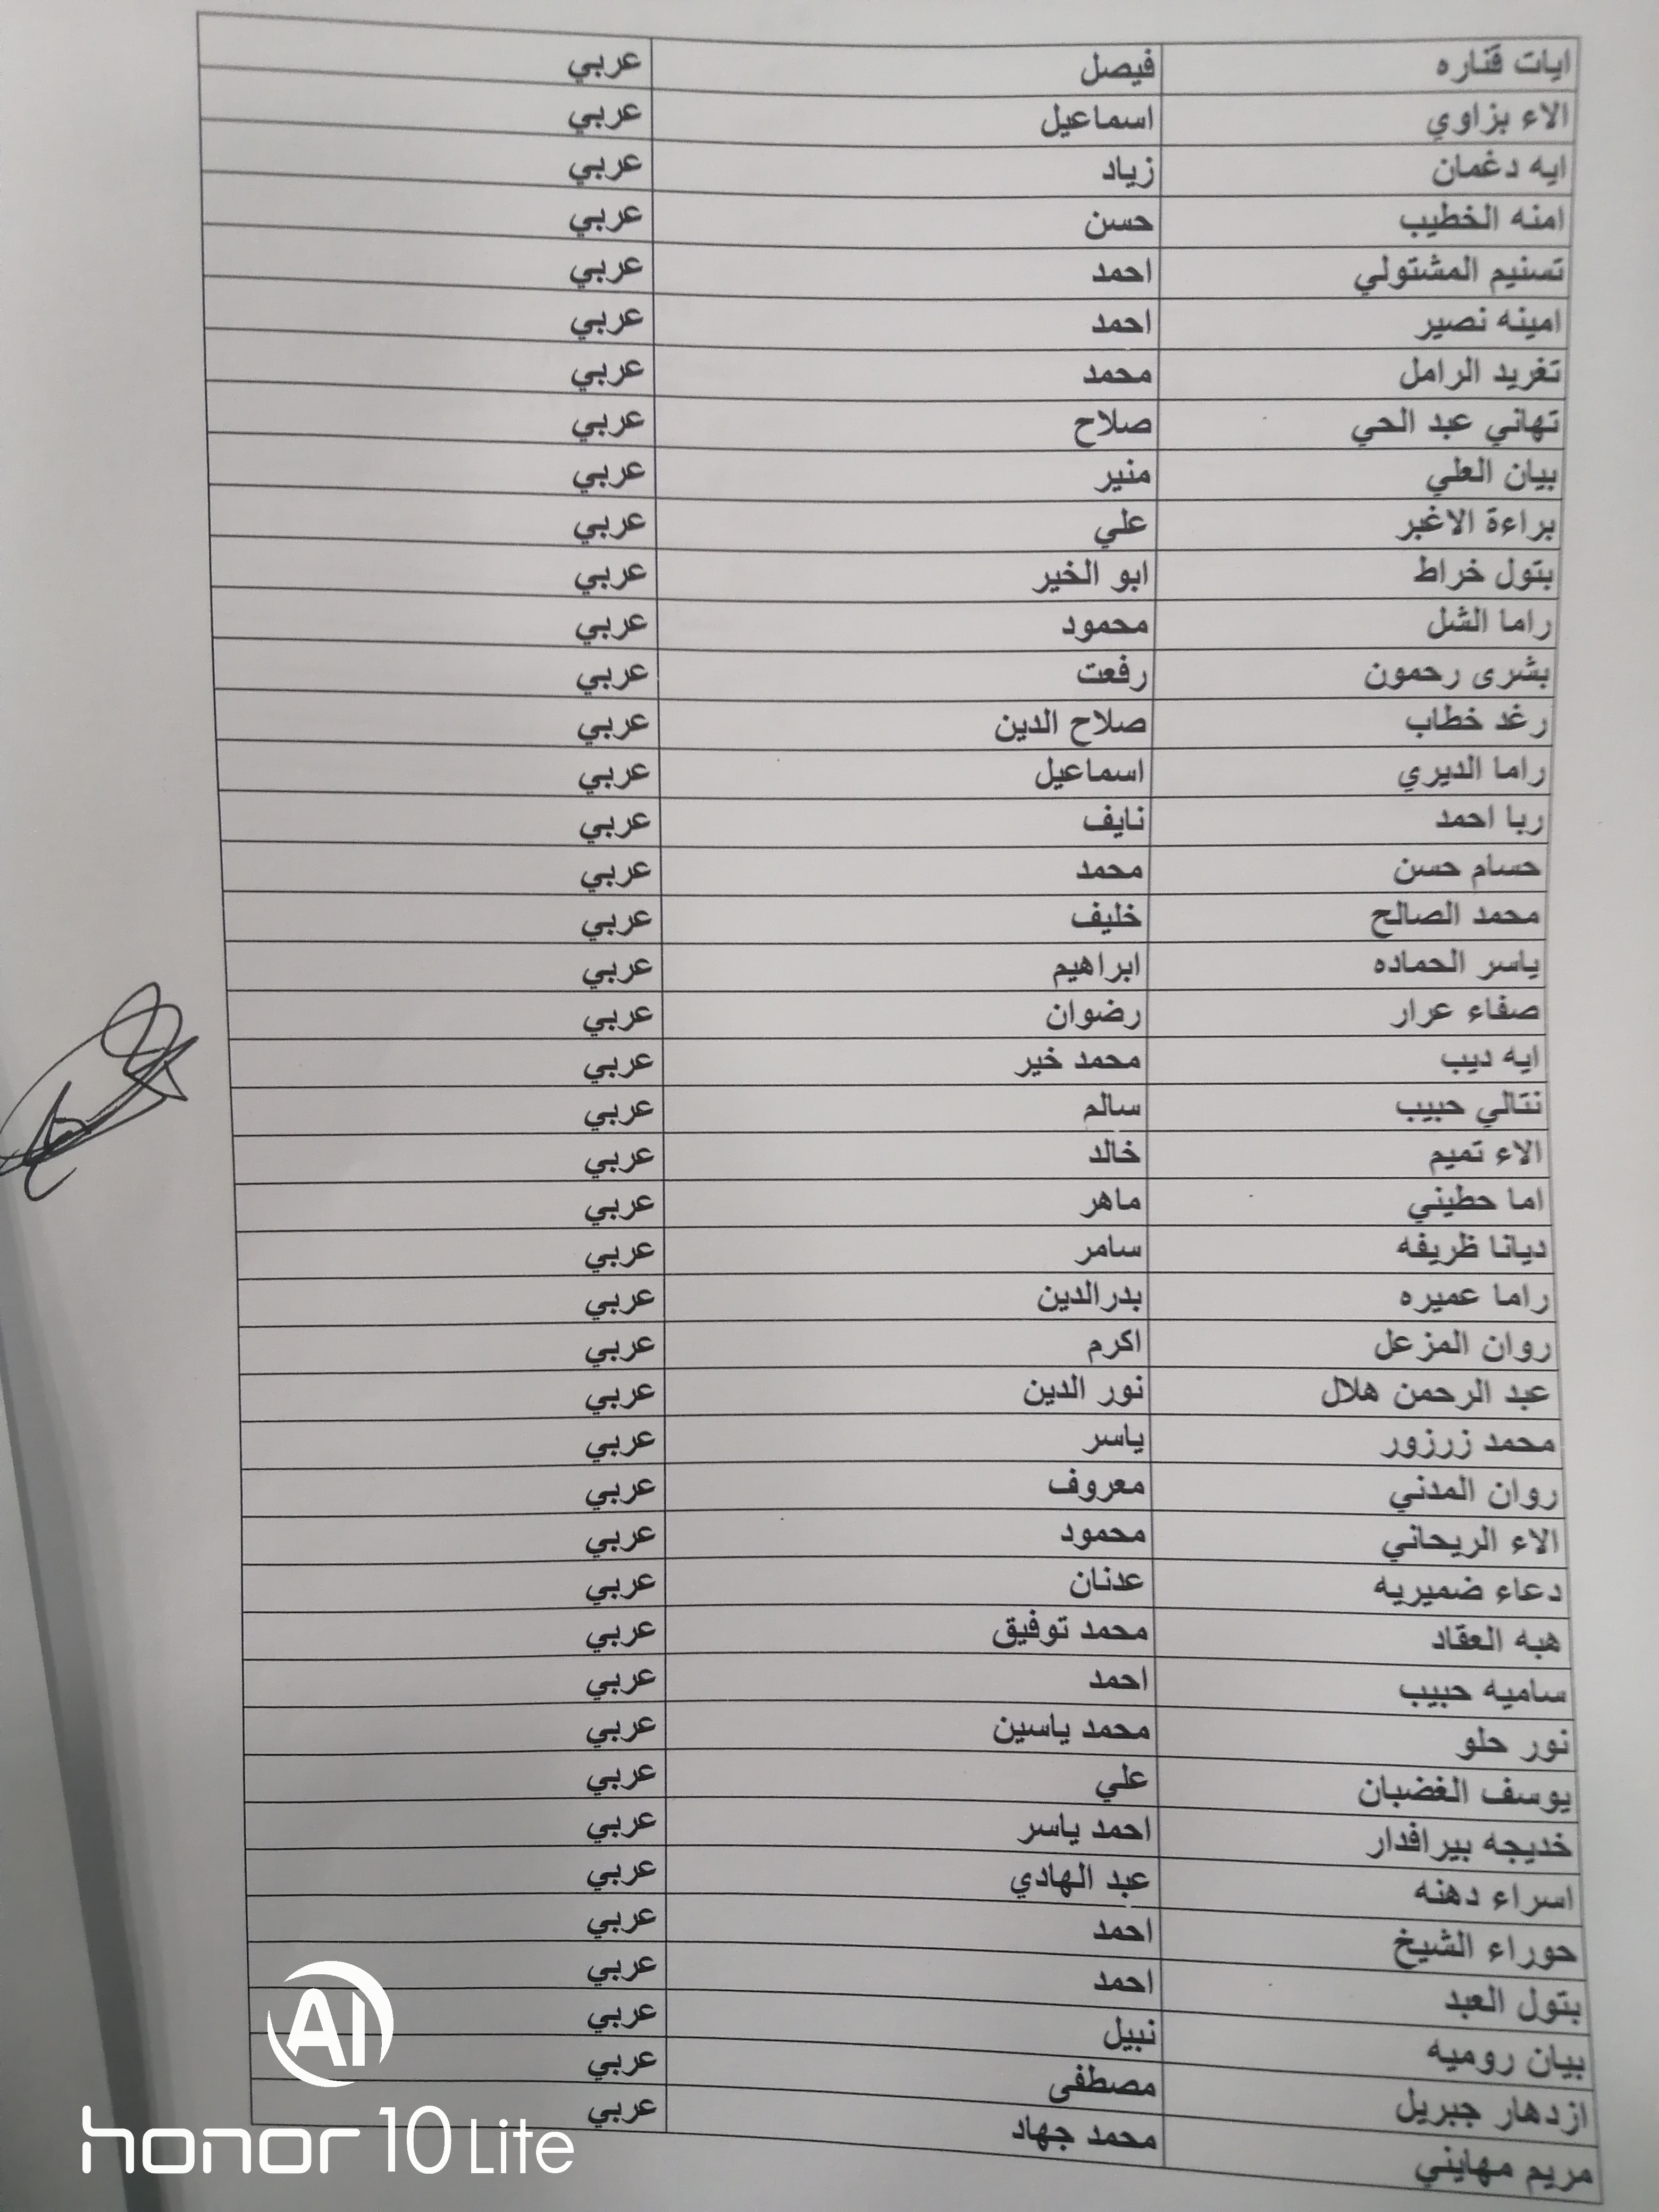 ايات قناره فيصل عربي
الاء بزاوي اسماعيل عربي
ايه دغمان زياد عربي
امنه الخطيب حسن عربي
تسنيم المشتولي احمد عربي
امينه نصير احمد عربي
تغريد الرامل محمد عربي
تهاني عبد الحي صلاح عربي
بيان العلي منير عربي
براءة الاغبر علي عربي
بتول خراط ابو الخير عربي
راما الشل محمود عربي
بشرى رحمون رفعت عربي
رغد خطاب صلاح الدين عربي
راما الديري اسماعيل عربي
ربا احمد نايف عربي
حسام حسن محمد عربي
محمد الصالح خليف عربي
ياسر الحماده ابراهيم عربي
صفاء عرار رضوان عربي
ايه ديب محمد خير عربي
نتالي حبيب سالم عربي
الاء تميم خالد عربي
اما حطيني ماهر عربي
ديانا ظريفه سامر عربي
راما عميره بدرالدين عربي
روان المزعل اكرم عربي
عبد الرحمن هلال نور الدين عربي
محمد زرزور ياسر عربي
روان المدني معروف عربي
الاء الريحاني محمود عربي
دعاء ضميريه عدنان عربي
هبه العقاد محمد توفيق عربي
ساميه حبيب احمد عربي
نور حلو محمد ياسين عربي
يوسف الغضبان علي عربي
خديجه بيرافدار احمد ياسر عربي
اسراء دهنه عبد الهادي عربي
حوراء الشيخ احمد عربي
بتول العبد احمد عربي
بيان روميه نبيل عربي
ازدهار جبريل مصطفى عربي
مريم مهايني محمد جهاد عربي
AI
honor 10 Lite